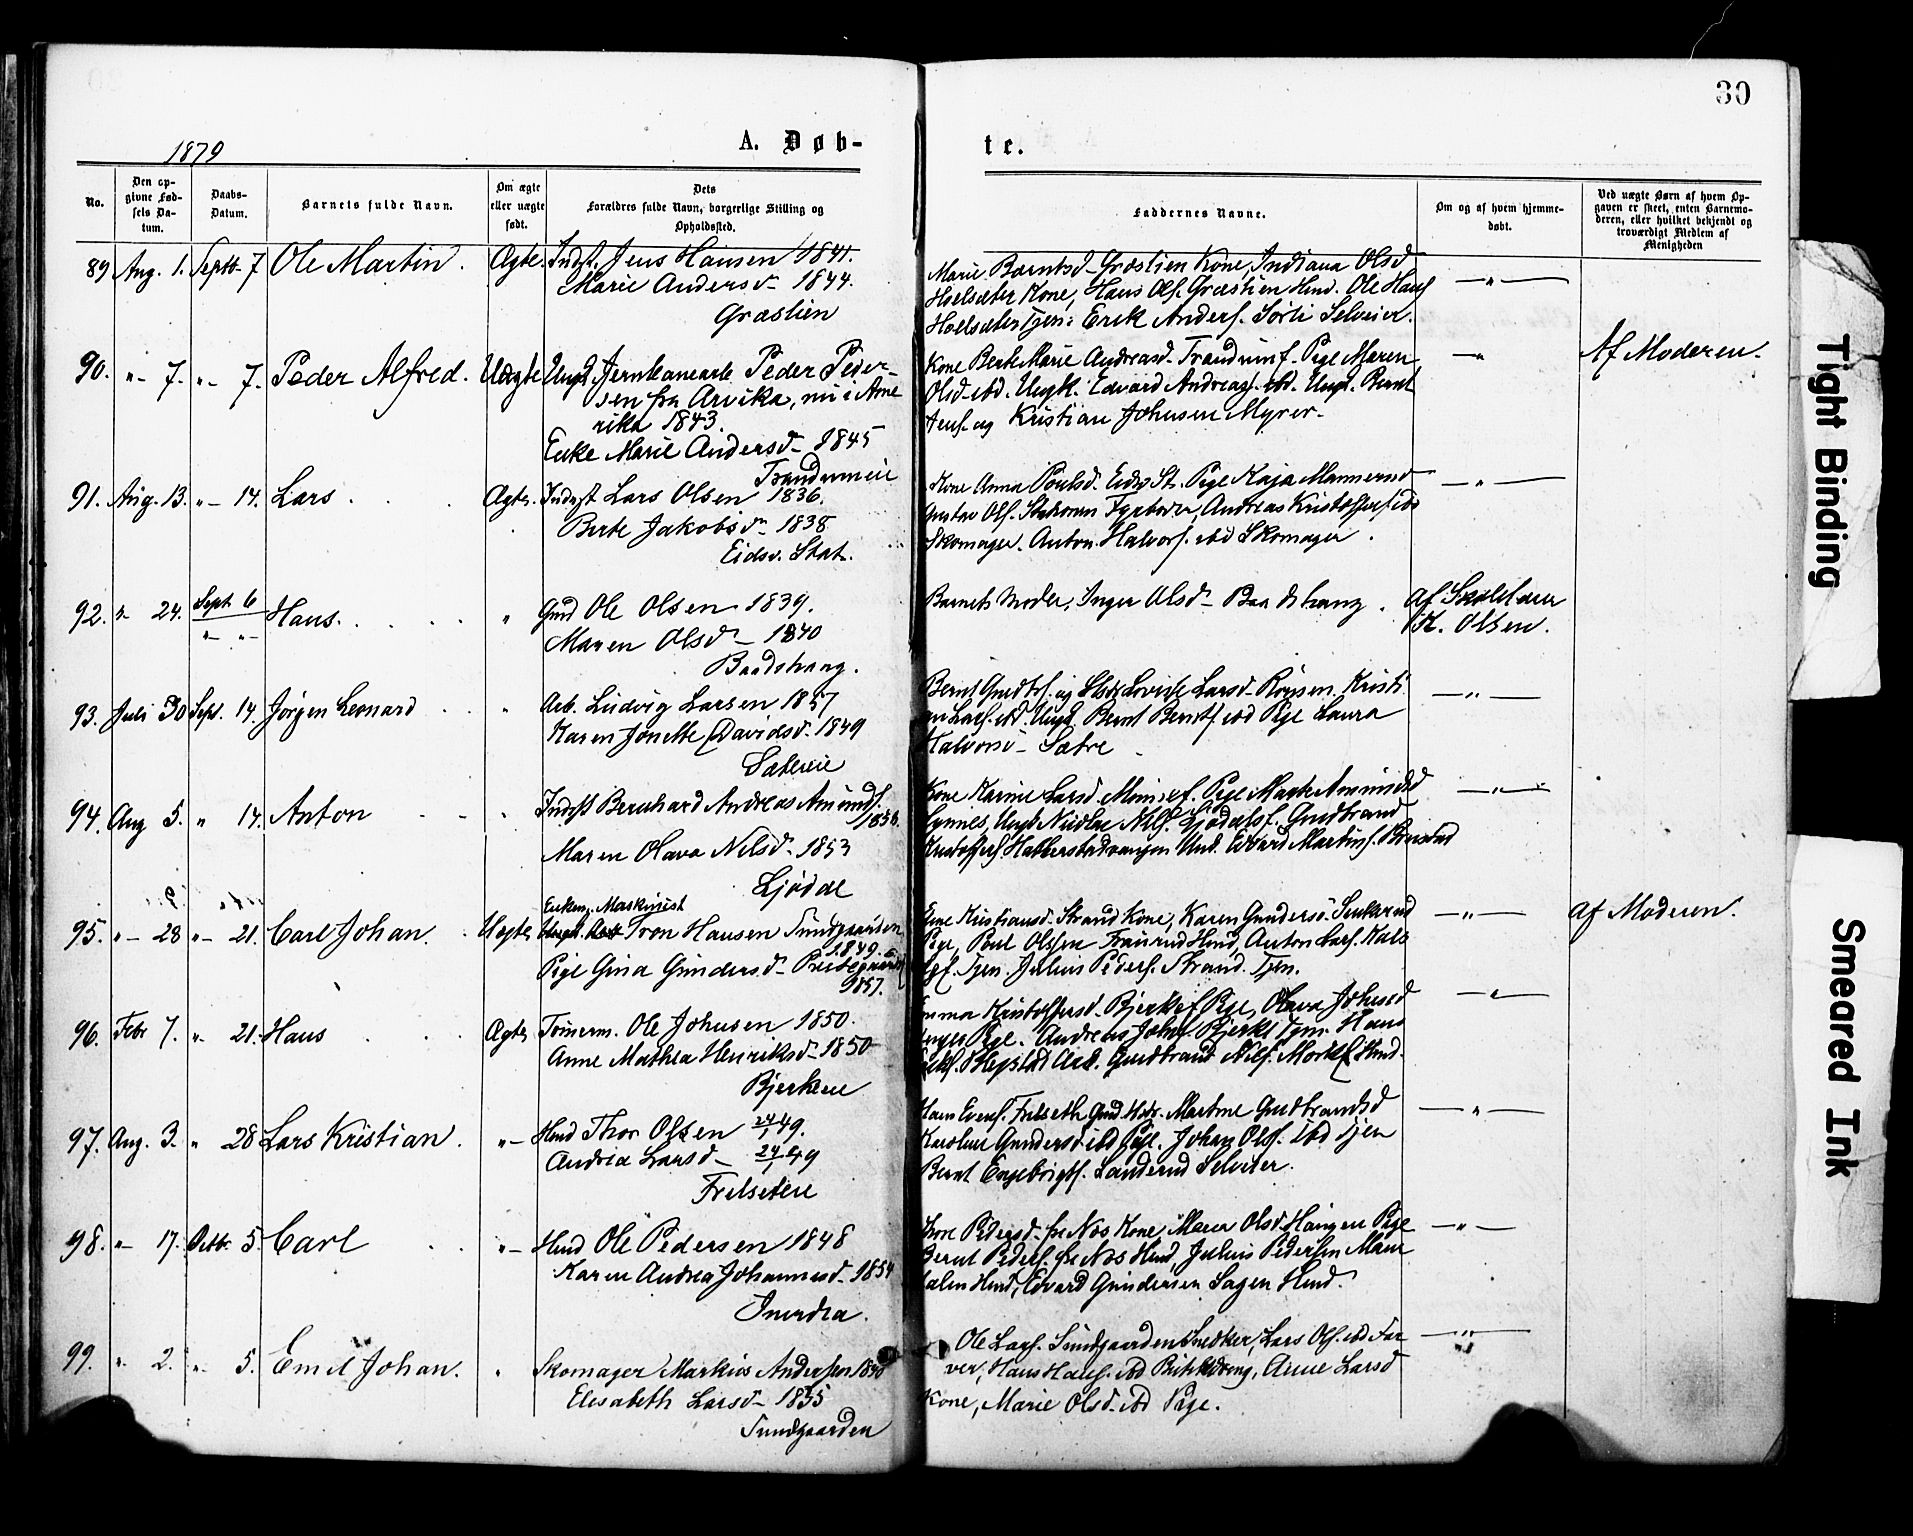 30
1879
A. Døb-
te.
No.
Den op-
givne Fød-
sels Da-
tum.
Daabs-
Datum.
Barnets fulde Navn.
Om ægte
eller uægte
født.
Dets
Forældres fulde Navn, borgerlige Stilling og
Opholdssted.
Faddernes Navne.
Om og af hvem hjemme-
døbt.
Ved uægte Børn af hvem Op-
gaven er skeet, enten Barnemo-
deren, eller hvilket bekjendt og
troværdigt Medlem af
Menigheden
89. Aug. 1. Septb. 7. Ole Martin. Ægte. Inderst. Jens Hansen 1841.
Marie Andersd. 1844.
Græslien
Marie Berntsd. Græslien Kone, Indiana Olsd
Hoelsæter Kone, Hans Ols. Græslien Hmd. Ole Hans
Hoelsæter Tjen: Erik Anders. Sørli Selveier.
— " —
90. " 7. " 7. Peder Alfred. Uægte Ungk. Jernbanearb. Peder Peder-
sen fra Arvika, nu i Ame
rika 1843.
Enke Marie Andersd. 1845
Trandumeie
Kone Berte Marie Andreasd. Trandum. Pige Maren
Olsd. ibd. Ungk. Edvard Andreas. ibd. Ungk. Bernt
Jens. og Kristian Johnsen Myrer.
— "
Af Moderen.
91. Aug. 13. " 14. Lars Ægte. Inderst Lars Olsen 1836.
Berte Jakobsd. 1838
Eidsv. Stat.
Kone Anna Poulsd. Eidsv. St. Pige Kaja
Gustav Ols. Fyrbøder, Andreas Kristoffers. ibd
Skomager. Anton Halvors. ibd Skomager.
— " —
92. " 24. Sept. 6 Hans. " Gmd Ole Olsen 1839.
" "
Maren Olsd. 1840
Baadshaug.
Barnets Moder, Inger Olsd. Baadshaug.
Af Skolelærer
K. Olsen.
93. Juli 30 Sept. 14. Jørgen Leonard " Arb. Ludvig Larsen 1857
Karen Jonette Davidsd. 1849
Sætereie
Bernt Gudbr. og Lovise Larsd. Kristi
an Lars. ibd. Ungk. Bernt Bernts. ibd Pige Laura
Halvorsd. Sætre
— " —
94. Aug 5. " 14. Anton " Inderst Bernhard Andreas Amunds.
1856.
Maren Olava Nilsd. 1853
Ljødal
Kone Karine Larsd. Pige Marte Amundsd
Lynnes, Ungk Nicolai Nils. Gudbrand
Kristoffers. Ungk. Edvard Martins.
— " —
95. " 28 " 21. Carl Johan. Uægte Enkem. Maskinist
Tron Hansen Sundgaarden
1849.
Pige Gina Gundersd. Prestegaard
1857.
Kristiansd. Strand Kone, Karen Gundersd.
Pige, Poul Olsen Hmd, Anton Lars.
Tjen. Julius Peders. Strand. Tjen.
— " —
Af Moderen.
96. Febr 7. " 21. Hans Ægte Tømmerm. Ole Johnsen 1850.
Anne Mathea Henriksd. 1850
Bjerkeeie
Emma Kristoffersd. Bjerke Pige, Olava Johnsd
Pige. Andreas Johns. Bjerke Tjen. Hans
Gudbrand Nils. Hmd.
— " —
97. Aug. 3. " 28 Lars Kristian. " Hmd Thor Olsen 24/1 49.
Andrea Larsd 24/1 49
Frilseteie
Hans Evens. Frilseth Gmd. Martine Gudbrandsd
Karoline Gundersd. ibd Pige. Johan Ols. ibd Tjen
Bernt Engebrigts. Sanderud Selveier.
— " —
98. " 17. Octbr. 5. Carl " Hmd Ole Pedersen 1848
Karen Andrea Johannesd. 1854
Pedersd. fra Nes Kone, Maren Olsd. Haugen Pige
Bernt Peders. fra Nes Hmd, Julius Pedersen
dalen Hmd, Edvard Gundersen Sagen Hmd.
— " —
99. " 2. " 5. Emil Johan. " Skomager Markus Andersen 1840
Elisabeth Larsd. 1835
Sundgaarden
Ole Lars. Sundgaarden Snedker, Lars Ols. ibd Far
ver, Hans Hans. ibd, Anne Larsd
Kone, Marie Olsd. ibd Pige.
— " —
Tight Binding
Smeared Ink